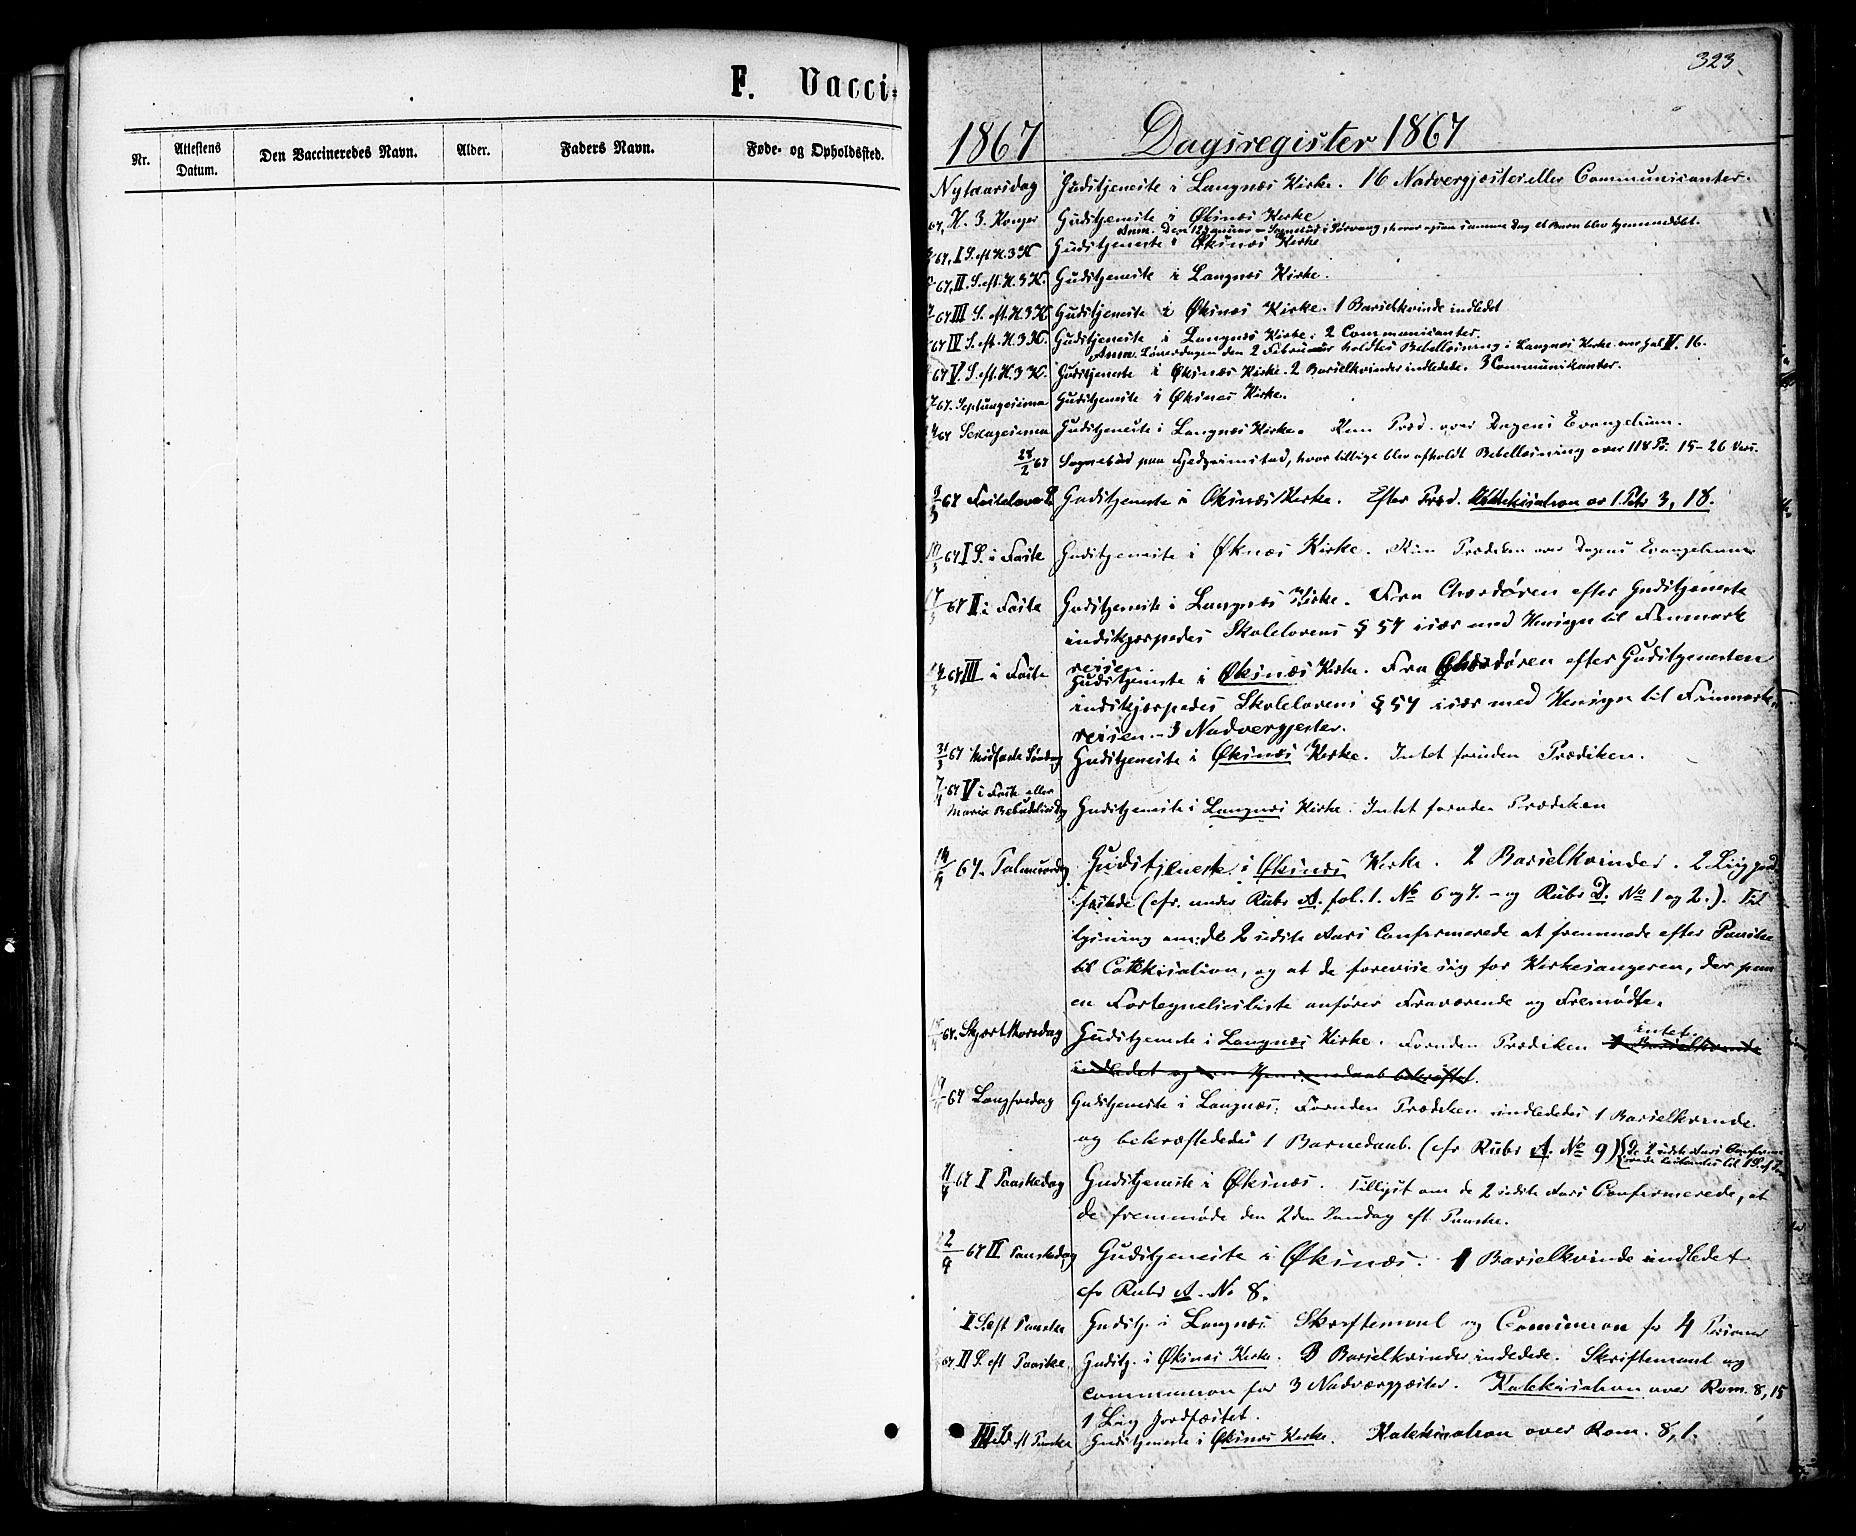 F. Vacci=
Nr.
Attestens Datum.
Den Vaccineredes Navn.
Alder.
Faders Navn.
Føde- og Opholdssted.
323.
1867 Dagsregister 1867
Nytaarsdag Gudstjeneste i Langnæs Kirke. 16 Nadvergjester eller Communicanter.
67, H. 3. Konger Gudstjeneste i Øksnæs Kirke
Anm. Den 12 Januar hvor ogsaa samme Dag et Barn blev hjemmedøbt.
67, I S. eft. H. 3 K Gudstjeneste i Øksnæs Kirke
67, II. S. eft. H. 3 K. Gudstjeneste i Langnæs Kirke.
67 III S. eft. H 3 K Gudstjeneste i Øksnæs Kirke. 1 Barselkvinde indledet
67 IV S. eft. H. 3 K. Gudstjeneste i Langnæs Kirke. 2 Communicanter.
Anm. Løverdagen den 2 Februar holdtes Bibellæsning i Langnæs Kirke over Gal. V. 16.
67 V. S. eft. H. 3 K. Gudstjeneste i Øksnæs Kirke. 2 Barselkvinder indledede. 3 Communikanter.
67. Septuagesima Gudstjeneste i Øksnæs Kirke.
67 Sexagesima Gudstjeneste i Langnæs Kirke. Kun Præd. over Dagens Evangelium.
28/2 67 Sognebud paa hvor tillige blev afholdt Bibellæsning over 118 Ps. 15-26 Vers.
3/3 67 Fastelavns S. Gudstjeneste i Øksnæs Kirke. Efter Præd. Katekisation ov 1. Petr 3, 18.
10/3 67 I S. i Faste Gudstjeneste i Øksnæs Kirke. Kun Prædiken over Dagens Evangelium
17/3 67 II i Faste Gudstjeneste i Langnæs Kirke. Fra Chordøren efter Gudstjeneste
indskjærpedes Skolelovens § 57 især med Hensyn til Finmark
reisen.
67 III i Faste Gudstjeneste i Øksnæs Kirke. Fra Chordøren efter Gudstjenesten
indskjærpedes Skolelovens § 57 især med Hensyn til Finmarks
reisen. - 3 Nadvergjester.
31/3 67 Midfaste Søndag Gudstjeneste i Øksnæs Kirke. Intet foruden Prædiken.
7/4 67 V i Faste eller
Mariæ Bebudelsesdag Gudstjeneste i Langnæs Kirke. Intet foruden Prædiken
14/4 67. Palmesøndag Gudstjeneste i Øksnæs Kirke. 2 Barselkvinder. 2 Liig jord
fæstede (cfr. under Rubr A. fol. 1. No 6 og 7. - og Rubr D. No 1 og 2.). Til
lysning om: de 2 sidste Aars Confirmerede at fremmøde efter Paaske
til Catekisation, og at de foreviise sig for Kirkesangeren, der paa
en Fortegnelsesliste anfører Fraværende og Fremødte.
67. Skjærthorsdag Gudstjeneste i Langnæs Kirke. Foruden Prædiken intet. 1 Barselkvinde
indledet og en Hjemmedaab bekræftet.
67 Langfredag Gudstjeneste i Langnæs. Foruden Prædiken indledes 1 Barselkvinde
og bekræftedes 1 Barnedaab. (cfr Rubr A. No 9) (De 2 sidste Aars Confirme
rede
67 I Paaskedag Gudstjeneste i Øksnæs. Tillyst om de 2 sidste Aars Confirmerede, at
de fremmøde den 2den Søndag eft. Paaske.
67 II Paaskedag Gudstjeneste i Øksnæs. 1 Barselkvinde indledet
cfr Rubr A. No 8.
I S. eft Paaske Gudstj. i Langnæs. Skriftemaal og Communion for 4 Personer
67 II S. eft Paaske. Gudstj. i Øksnæs Kirke. 3 Barselkvinder indledede. Skriftemaal og
communion for 3 Nadvergjæster. Katekisation over Rom. 8, 15
1 Liig jordfæstet.
III S. eft Paaske Gudstjeneste i Øksnæs Kirke. Katekisation over Rom. 8, 1.